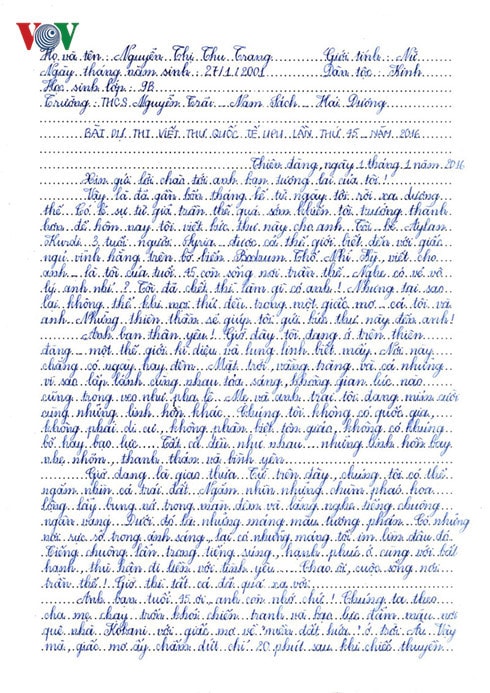 VOV
Họ và tên: Nguyễn Thị Thu Trang Giới tính: Nữ
Ngày tháng năm sinh: 27/1/2001 Dân tộc: Kinh
Học sinh lớp: 9B
Trường: THCS Nguyễn Trãi - Nam Sách - Hải Dương
BÀI DỰ THI VIẾT THƯ QUỐC TẾ UPU LẦN THỨ 45 - NĂM 2016
Thiên đàng, ngày 1 tháng 1 năm 2016
Xin gửi lời chào tới anh bạn tương lai của tôi!
Vậy là đã gần bốn tháng kể từ ngày tôi rời xa dương
thế. Có lẽ sự từ giã trần thế quá sớm khiến tôi trưởng thành
hơn để hôm nay tôi viết bức thư này cho anh. Tôi - bé Aylan
Kurdi 3 tuổi người Syria được cả thế giới biết đến với giấc
ngủ vĩnh hằng trên bờ biển Bodrum Thổ Nhĩ Kỳ viết cho
anh - là tôi của tuổi 45 còn sống nơi trần thế. Nghe có vẻ vô
lý anh nhỉ? Tôi đã chết thì làm gì có anh! Nhưng tại sao
lại không thể khi mọi thứ đều trong một giấc mơ cả tôi và
anh. Những thiên thần sẽ giúp tôi gửi bức thư này đến anh!
Anh bạn thân yêu! Giờ đây tôi đang ở trên thiên
đàng - một thế giới kì diệu và lung linh biết mấy. Nơi này
chẳng có ngày hay đêm. Mặt trời, vầng trăng và cả những
vì sao lấp lánh cùng nhau tỏa sáng, không gian lúc nào
cũng trong veo như pha lê. Mẹ và anh trai tôi đang mỉm cười
cùng những linh hồn khác. Chúng tôi không có quốc gia,
không phải di cư, không phân biệt tôn giáo, không có khủng
bố hay bạo lực. Tất cả đều như nhau - những linh hồn bay
nhẹ nhõm, thanh thản và bình yên.
Giờ đang là giao thừa. Từ trên đây, chúng tôi có thể
ngắm nhìn cả trái đất. Ngắm nhìn những chùm pháo hoa
lộng lẫy bung nở trong màn đêm và lắng nghe tiếng chuông
ngân vang. Dưới đó là những mảng màu tương phản. Có những
nơi rực rỡ trong ánh sáng, lại có những mảng tối im lìm đâu đó.
Tiếng chuông lẫn trong tiếng súng, hạnh phúc ở cùng với bất
hạnh, thù hận đi liền với tình yêu. Chao ôi, cuộc sống nơi
trần thế! Giờ thì tất cả đã quá xa vời.
Anh bạn tuổi 45 ơi, anh còn nhớ chứ! Chúng ta theo
cha mẹ chạy trốn khỏi chiến tranh và bạo lực đẫm máu nơi
quê nhà Kobani với giấc mơ về "miền đất hứa" ở trời Âu. Vậy
mà, giấc mơ ấy chấm dứt chỉ 20 phút sau khi chiếc thuyền